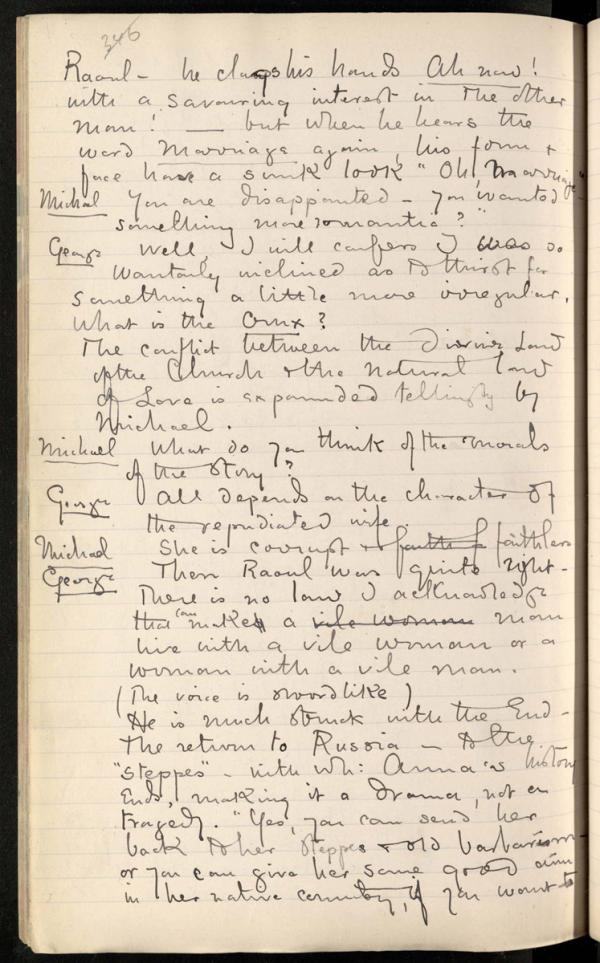 346
Raoul – he claps his hands Ah now!
with a savouring interest in the other
man! — but when he hears the
word Marriage again, his form &
face have a sunk look "Oh, Marriage"
Michael You are disappointed – you wanted
something more romantic?"
George Well, I will confess I was so
wantonly inclined as to thirst for
something a little more irregular.
What is the Crux?
The conflict between the Divine Land
of the Church & the natural land
of Love is expounded tellingly by
Michael.
Michael What do you think of the morals
of the story?
George All depends on the character of
the repudiated wife.
Michael She is corrupt & faith f faithless
George Then Raoul was quite right –
There is no law I acknowledge
that can makes a vile woman man
live with a vile woman or a
woman with a vile man.
(The voice is swordlike)
He is much struck with the End –
the return to Russia – to the
"Steppes" – with wh: Anna's history
Ends, making it a drama, not a
tragedy. "Yes, you can send her
back to her Steppes & old barbarism
or you can give her some good aim
in her native country, if you want to